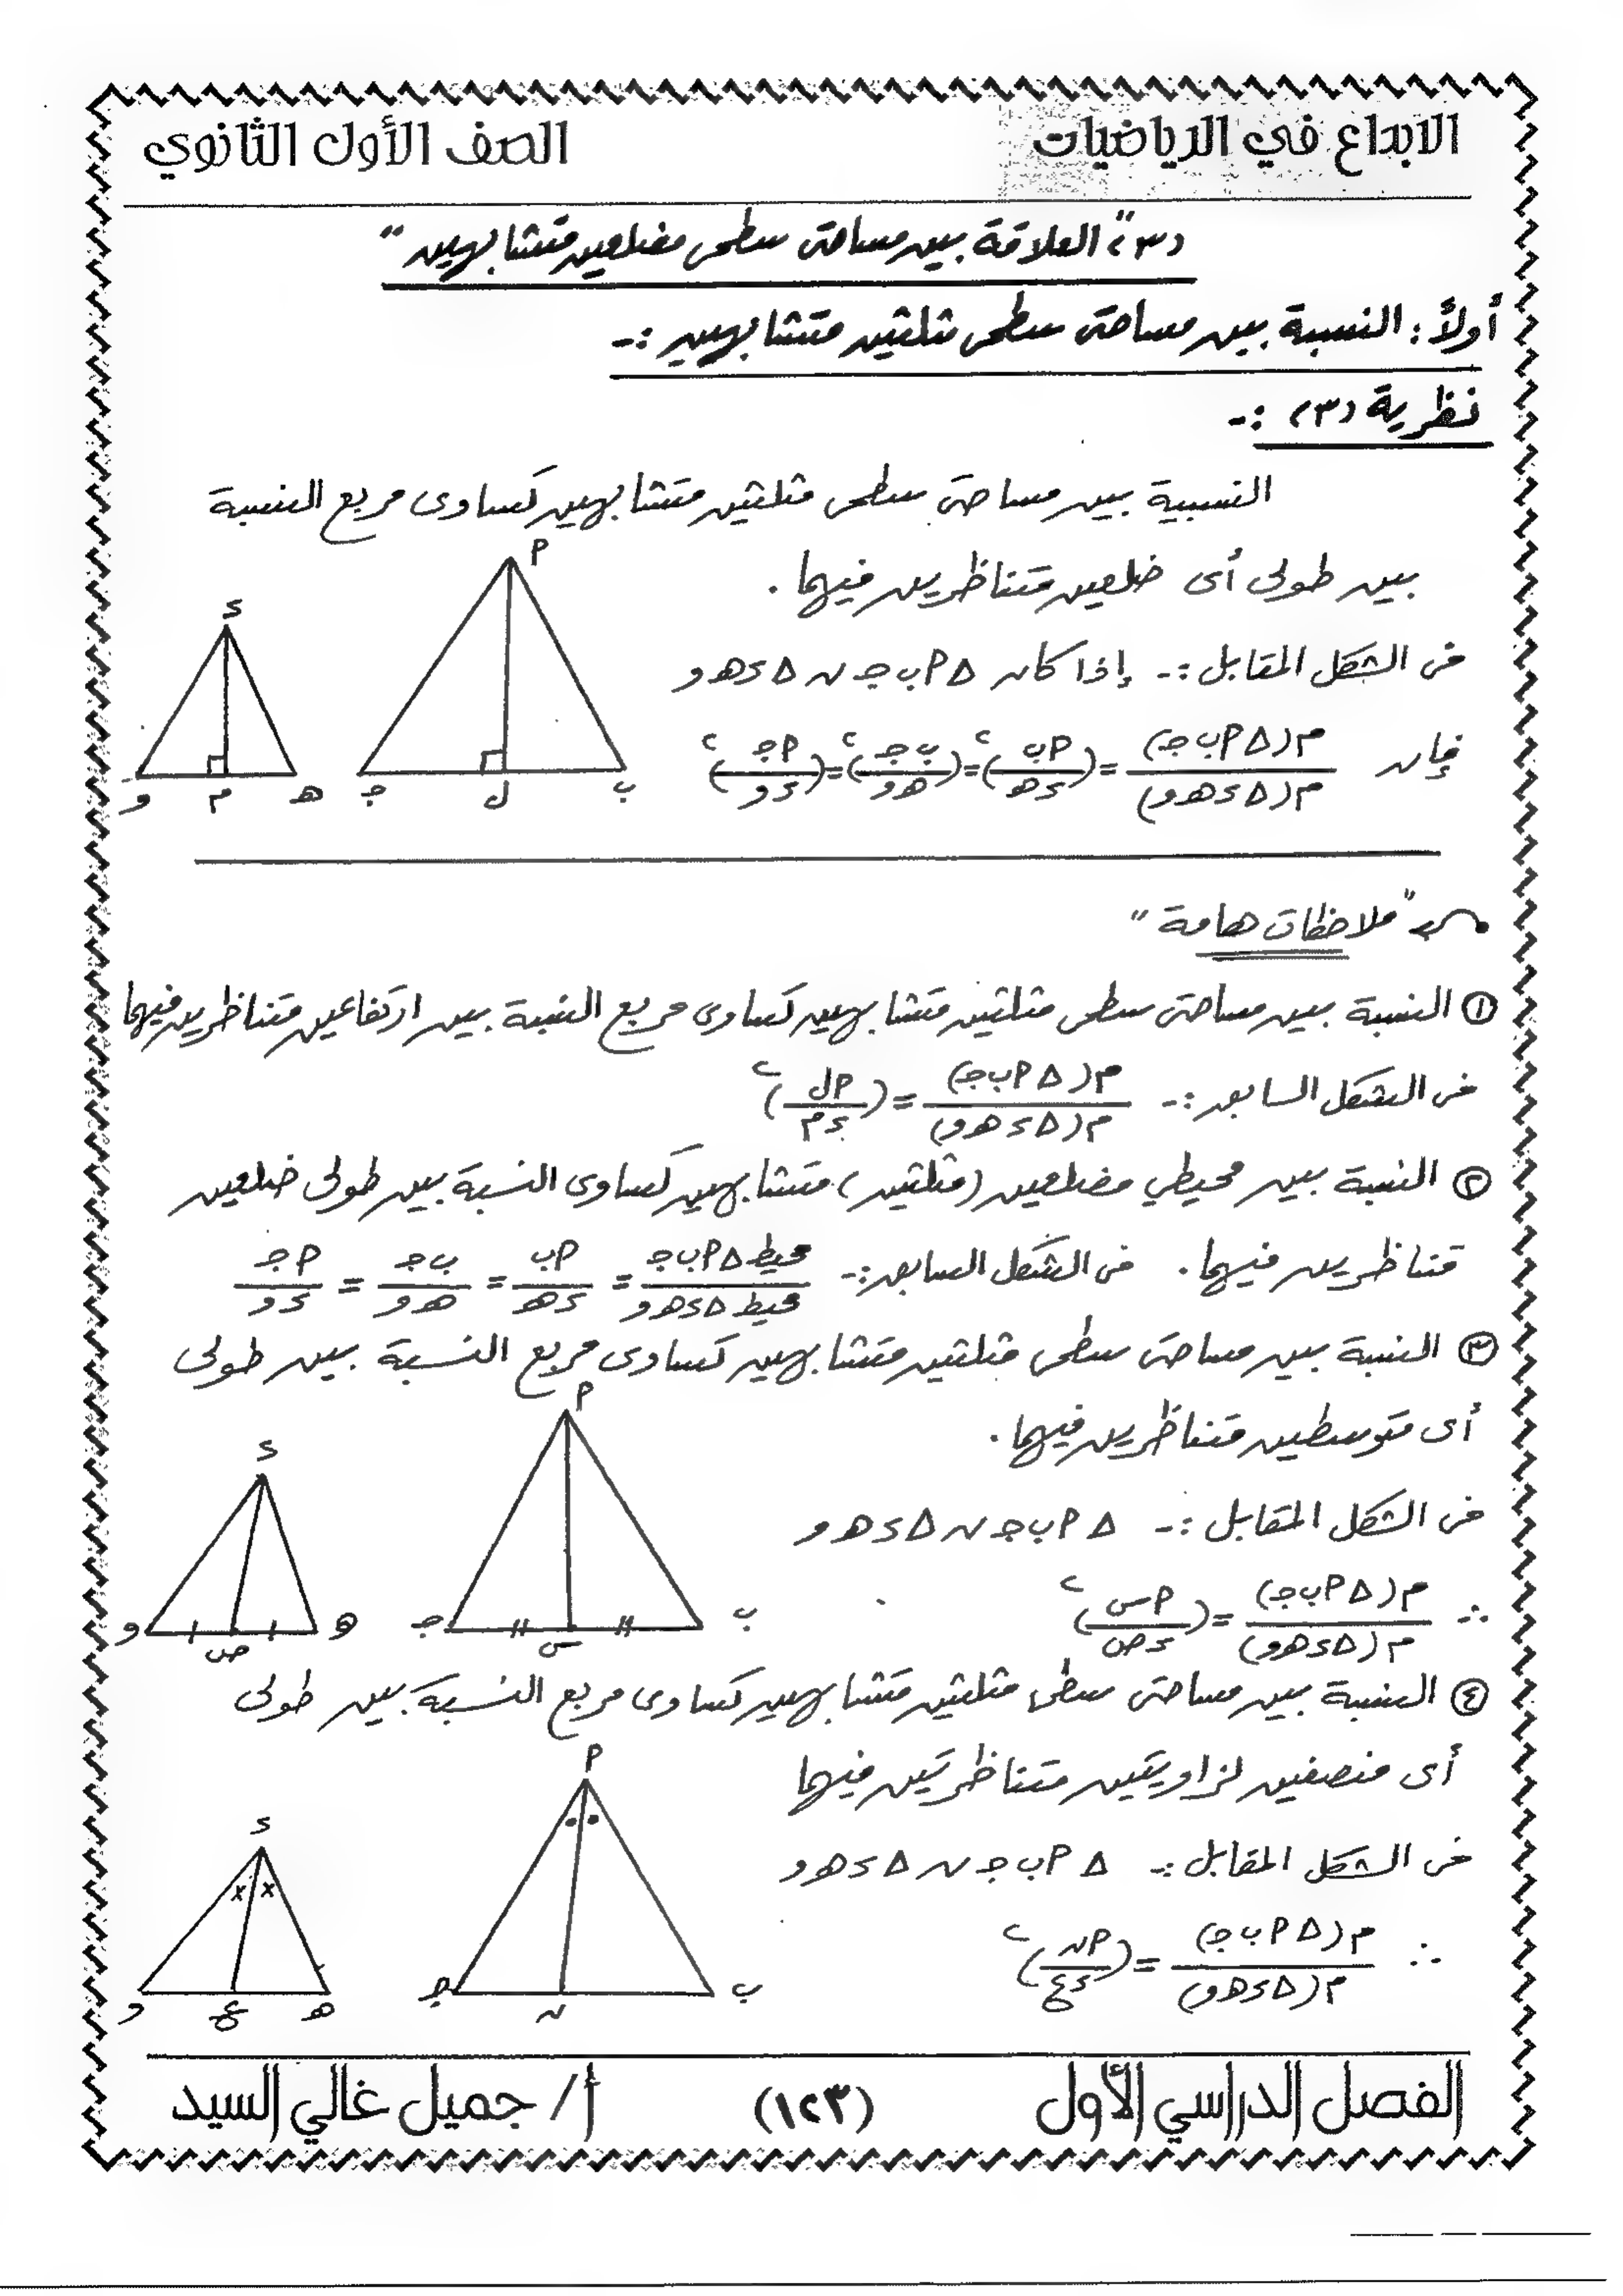 الابداع في الرياضيات
الصف الأول الثانوي
(٣) "العلاقة بين مساحتى سطحى مضلعين متشابهين"
أولاً : النسبة بين مساحتى سطحى مثلثين متشابهين :-
نظرية (٣) :-
النسبية بين مساحتى سطحى مثلثين متشابهين تساوى مربع النسبة
بين طولى أى ضلعين متناظرين فيهما .
فى الشكل المقابل :- إذا كان Δ أ ب جـ ~ Δ د هـ و
فإن م(Δ أ ب جـ) / م(Δ د هـ و) = (أ ب / د هـ)² = (ب جـ / هـ و)² = (أ جـ / د و)²
أ
د
و م هـ جـ ل ب
"ملاحظات هامة"
① النسبة بين مساحتى سطحى مثلثين متشابهين تساوى مربع النسبة بين ارتفاعين متناظرين فيهما
فى الشكل السابق :- م(Δ أ ب جـ) / م(Δ د هـ و) = (أ ل / د م)²
② النسبة بين محيطي مضلعين (مثلثين) متشابهين تساوى النسبة بين طولى ضلعين
متناظرين فيهما . فى الشكل السابق :- محيط Δ أ ب جـ / محيط Δ د هـ و = أ ب / د هـ = ب جـ / هـ و = أ جـ / د و
③ النسبة بين مساحتى سطحى مثلثين متشابهين تساوى مربع النسبة بين طولى
أى متوسطين متناظرين فيهما .
أ
د
فى الشكل المقابل :- Δ أ ب جـ ~ Δ د هـ و
و ص هـ جـ س ب
∴ م(Δ أ ب جـ) / م(Δ د هـ و) = (أ س / د ص)²
④ النسبة بين مساحتى سطحى مثلثين متشابهين تساوى مربع النسبة بين طولى
أى منصفين لزاويتين متناظرتين فيهما
أ
د
فى الشكل المقابل :- Δ أ ب جـ ~ Δ د هـ و
∴ م(Δ أ ب جـ) / م(Δ د هـ و) = (أ ن / د ع)²
x x
و ع هـ جـ ن ب
الفصل الدراسي الأول
(١٢٣)
أ / جميل غالي السيد